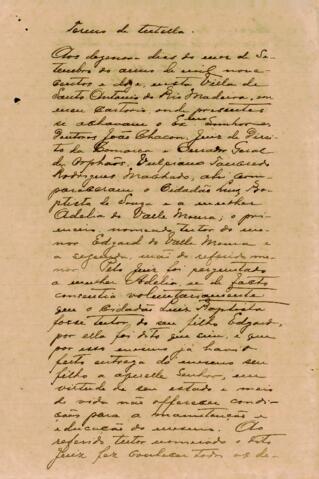 Termo de tutella.
Aos dezenove dias do mez de Se-
tembro do anno de mil nove-
centos e doze, nesta Villa de
Santo Antonio do Rio Madeira, em
meu cartorio, onde presentes
se achavam o Exmo Senhor
Doutor João Chacon, Juiz de Direi-
to da Comarca e Curador Geral
de Orphãos, Vulpiano Tancredo
Rodrigues Machado, ahi com-
pareceram o Cidadão Luiz Bap-
tista de Souza e a mulher
Adelia do Valle Moura; o pri-
meiro nomeado tutor do me-
nor Edgard do Valle Moura e
a segunda, mãe do referido me-
nor. Pelo Juiz foi perguntado
a mulher Adelia, se de facto
consentia voluntariamente
que o Cidadão Luiz Baptista
fosse tutor, do seu filho Edgard,
por ella foi dito que sim, e que
por isso mesmo já havia
feito entrega do mesmo seu
filho a aquelle Senhor, em
virtude de seu estado e meio
de vida não offerecer condi-
ções para a manutenção e
educação do mesmo. Ao
referido tutor nomeado o dito
Juiz fez conhecer todos os de-